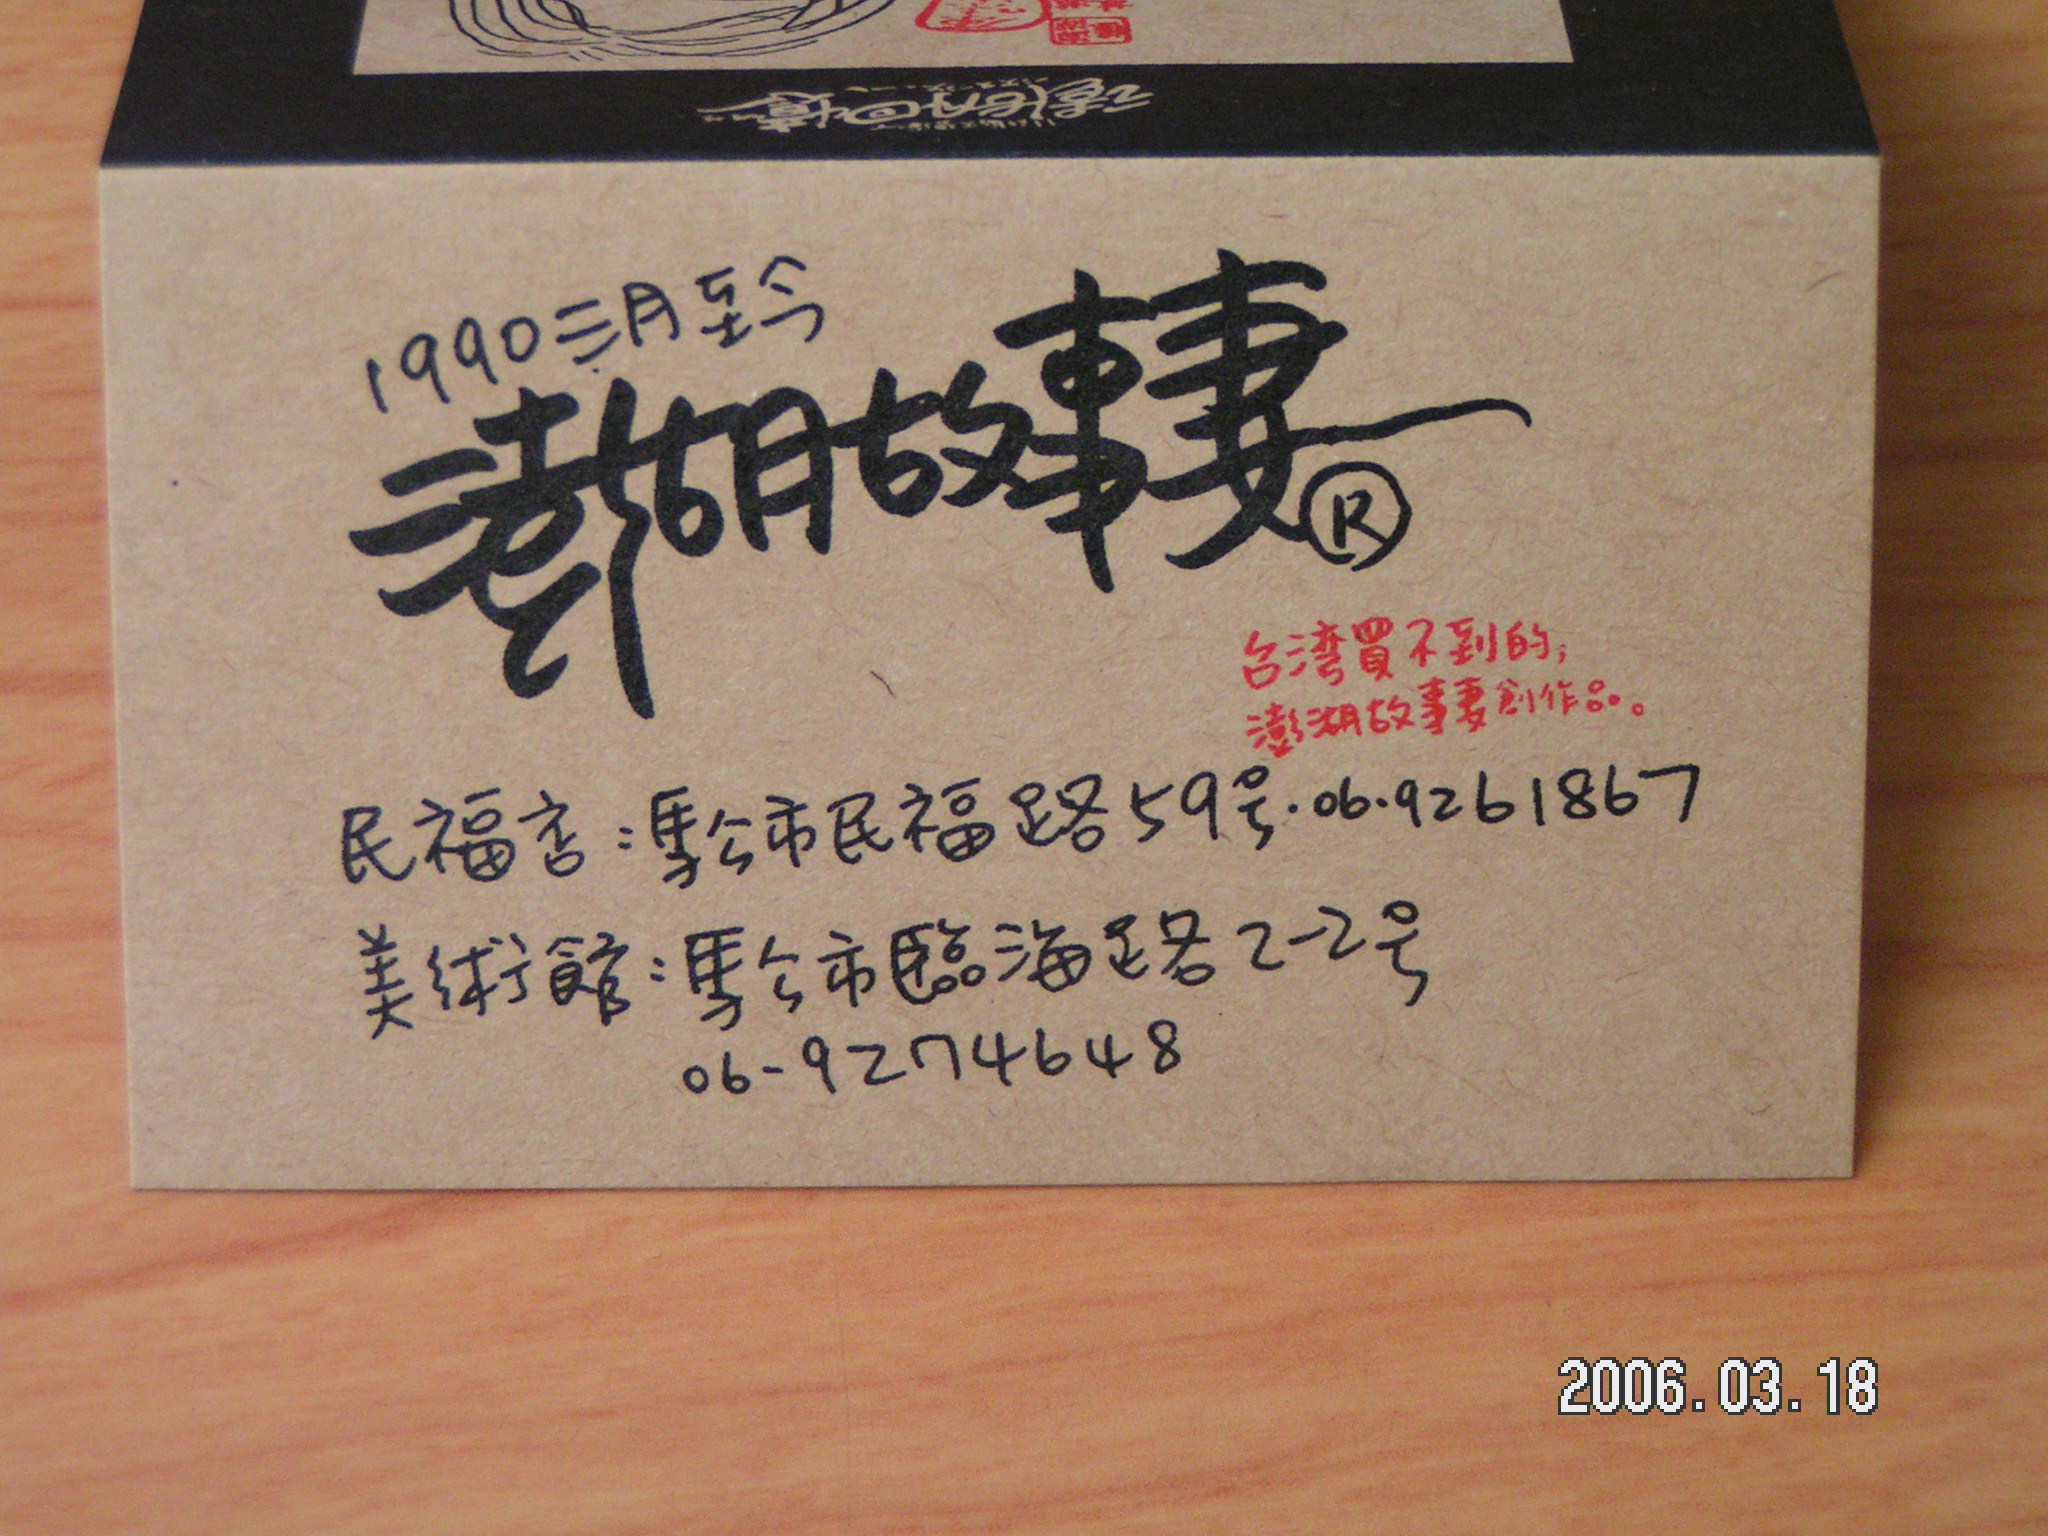 1990三月至今
澎湖故事妻®
台湾買不到的,
澎湖故事妻創作品。
民福店:馬公市民福路59号·06·9261867
美術館:馬公市臨海路2-2号
06-9274648
2006.03.18